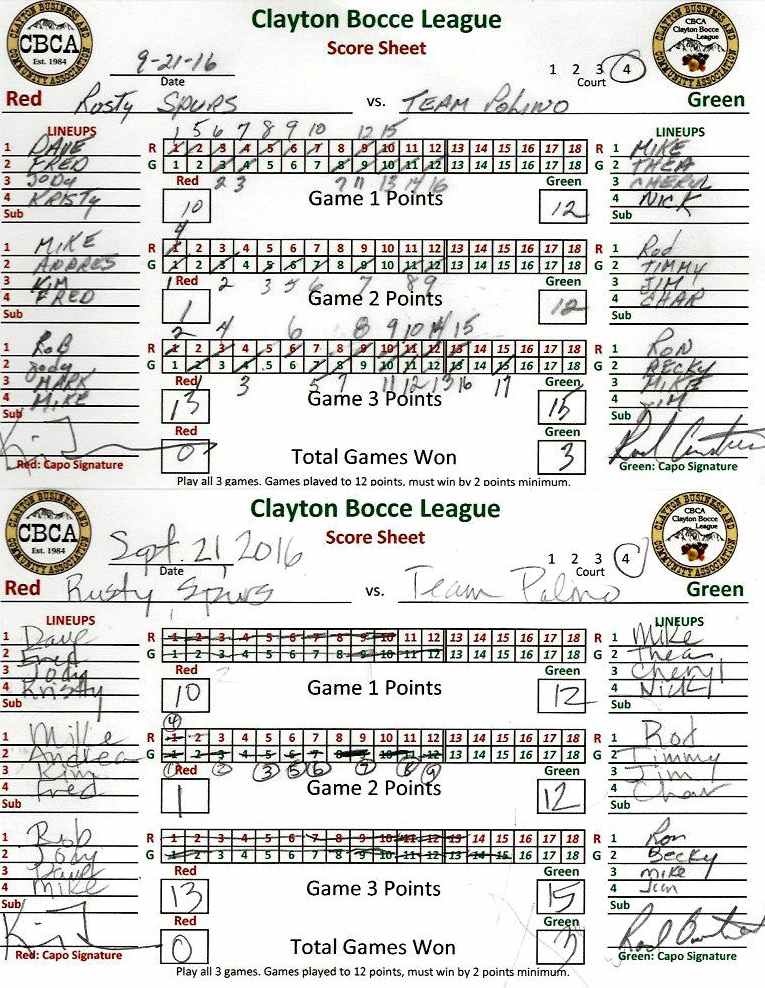 CLAYTON BUSINESS AND COMMUNITY ASSOCIATION
CBCA
Est. 1984
Clayton Bocce League
Score Sheet
CBCA
Clayton Bocce League
9-21-16
Date
1 2 3 4
Court
Red Rosty SPURS vs. TEAM POLINO Green
LINEUPS
LINEUPS
1 5 6 7 8 9 10 12 15
1 DAVE R 1 2 3 4 5 6 7 8 9 10 11 12 13 14 15 16 17 18 R 1 MIKE
2 FRED G 1 2 3 4 5 6 7 8 9 10 11 12 13 14 15 16 17 18 G 2 THEA
3 JODY Red 2 3 7 11 13 14 16 Green 3 CHERYL
4 KRISTY 10 Game 1 Points 12 4 NICK
Sub
Sub
4
1 MIKE R 1 2 3 4 5 6 7 8 9 10 11 12 13 14 15 16 17 18 R 1 Rod
2 ANDRES G 1 2 3 4 5 6 7 8 9 10 11 12 13 14 15 16 17 18 G 2 TIMMY
3 KIM 1 Red 2 3 5 6 7 8 9 Green 3 JIM
4 FRED 1 Game 2 Points 12 4 CHAR
Sub
Sub
2 4 6 8 9 10 14 15
1 RoB R 1 2 3 4 5 6 7 8 9 10 11 12 13 14 15 16 17 18 R 1 RON
2 Jody G 1 2 3 4 5 6 7 8 9 10 11 12 13 14 15 16 17 18 G 2 BECKY
3 MARK Red 1 3 5 7 11 12 13 16 17 Green 3 MIKE
4 MIKE 13 Game 3 Points 15 4 JIM
Sub Red Green Sub
0 Total Games Won 3
Red: Capo Signature
Green: Capo Signature
Play all 3 games. Games played to 12 points, must win by 2 points minimum.
CLAYTON BUSINESS AND COMMUNITY ASSOCIATION
CBCA
Est. 1984
Clayton Bocce League
Score Sheet
CBCA
Clayton Bocce League
Sept. 21 2016
Date
1 2 3 4
Court
Red Rusty Spurs vs. Team Polino Green
LINEUPS
LINEUPS
1 Dave R 1 2 3 4 5 6 7 8 9 10 11 12 13 14 15 16 17 18 R 1 Mike
2 Fred G 1 2 3 4 5 6 7 8 9 10 11 12 13 14 15 16 17 18 G 2 Thea
3 Jody Red Green 3 Cheryl
4 Kristy 10 Game 1 Points 12 4 Nick
Sub
Sub
4
1 Mike R 1 2 3 4 5 6 7 8 9 10 11 12 13 14 15 16 17 18 R 1 Rod
2 Andrea G 1 2 3 4 5 6 7 8 9 10 11 12 13 14 15 16 17 18 G 2 Timmy
3 Kim 1 Red 2 3 5 6 7 8 9 Green 3 Jim
4 Fred 1 Game 2 Points 12 4 Char
Sub
Sub
1 Rob R 1 2 3 4 5 6 7 8 9 10 11 12 13 14 15 16 17 18 R 1 Ron
2 Jody G 1 2 3 4 5 6 7 8 9 10 11 12 13 14 15 16 17 18 G 2 Becky
3 Red Green 3 mike
4 Mike 13 Game 3 Points 15 4 Jim
Sub Red Green Sub
0 Total Games Won 3
Red: Capo Signature
Green: Capo Signature
Play all 3 games. Games played to 12 points, must win by 2 points minimum.